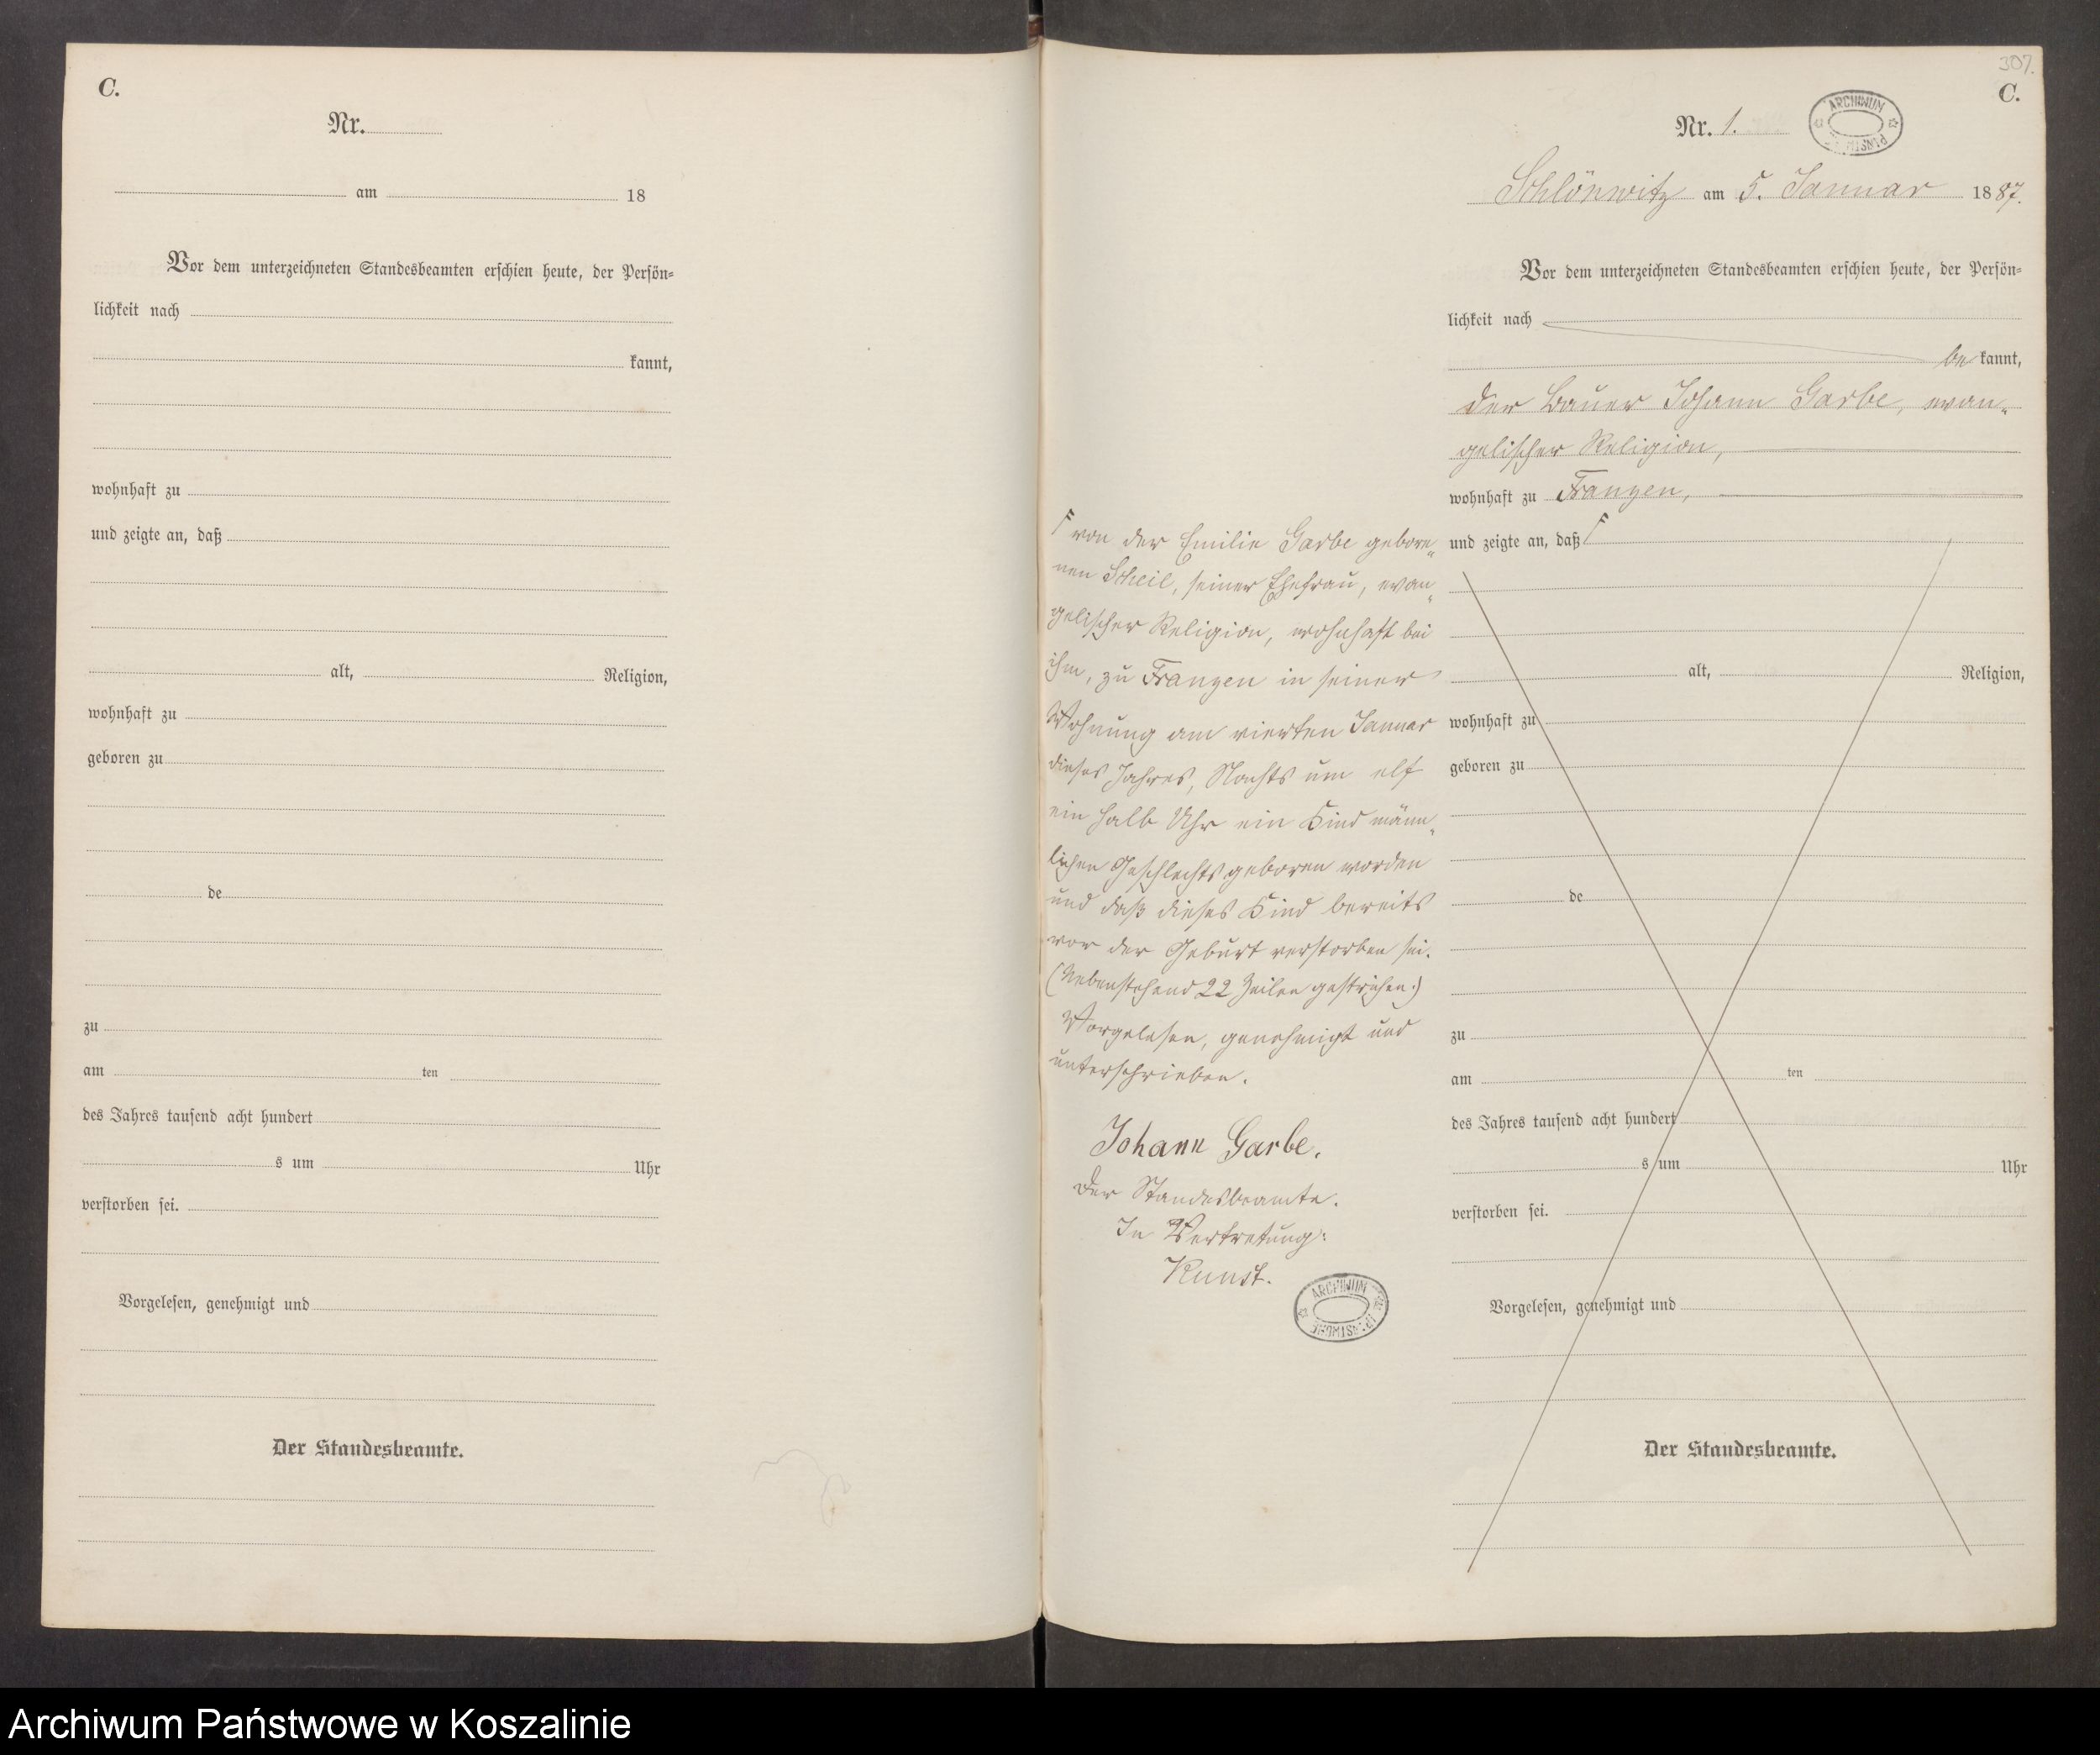 C.
Nr.
am 18
Vor dem unterzeichneten Standesbeamten erschien heute, der Persön-
lichkeit nach
kannt,
wohnhaft zu
und zeigte an, daß
alt, Religion,
wohnhaft zu
geboren zu
de
zu
am ten
des Jahres tausend acht hundert
s um Uhr
verstorben sei.
Vorgelesen, genehmigt und
Der Standesbeamte.
307.
C.
Nr. 1.
ARCHIWUM
Schlönwitz am 5. Januar 1887.
Vor dem unterzeichneten Standesbeamten erschien heute, der Persön-
lichkeit nach
be kannt,
der Bauer Johann Garbe, evan-
gelischer Religion,
wohnhaft zu Franzen,
und zeigte an, daß F
alt, Religion,
wohnhaft zu
geboren zu
de
zu
am ten
des Jahres tausend acht hundert
s um Uhr
verstorben sei.
Vorgelesen, genehmigt und
Der Standesbeamte.
F von der Emilie Garbe gebore-
nen Scheil, seiner Ehefrau, evan-
gelischer Religion, wohnhaft bei
ihm, zu Franzen in seiner
Wohnung am vierten Januar
dieses Jahres, Nachts um elf
ein halb Uhr ein Kind männ-
lichen Geschlechts geboren worden
und daß dieses Kind bereits
vor der Geburt verstorben sei.
(Nebenstehend 22 Zeilen gestrichen.)
Vorgelesen, genehmigt und
unterschrieben.
Johann Garbe.
Der Standesbeamte.
In Vertretung:
Kunst.
ARCHIWUM
Archiwum Państwowe w Koszalinie